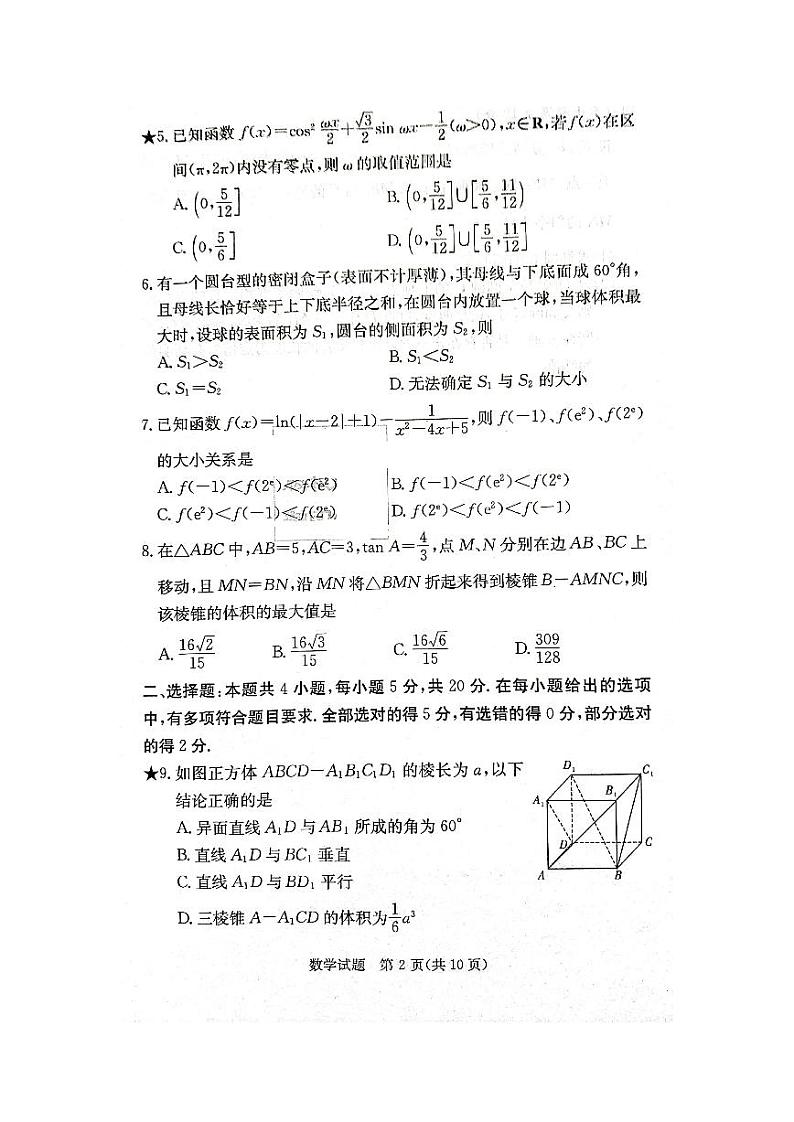 ★5. 已知函数 f(x)=cos² ωx/2 + √3/2 sin ωx − 1/2 (ω>0), x∈R, 若 f(x) 在区
间(π,2π)内没有零点,则 ω 的取值范围是
A. (0, 5/12]    B. (0, 5/12]∪[5/6, 11/12)
C. (0, 5/6]    D. (0, 5/12]∪[5/6, 11/12]
6. 有一个圆台型的密闭盒子(表面不计厚薄),其母线与下底面成 60°角,
且母线长恰好等于上下底半径之和,在圆台内放置一个球,当球体积最
大时,设球的表面积为 S₁,圆台的侧面积为 S₂,则
A. S₁>S₂    B. S₁<S₂
C. S₁=S₂    D. 无法确定 S₁ 与 S₂ 的大小
7. 已知函数 f(x)=ln(|x−2|+1)− 1/(x²−4x+5), 则 f(−1)、f(e²)、f(2ᵉ)
的大小关系是
A. f(−1)<f(2ᵉ)<f(e²)    B. f(−1)<f(e²)<f(2ᵉ)
C. f(e²)<f(−1)<f(2ᵉ)    D. f(2ᵉ)<f(e²)<f(−1)
8. 在△ABC 中,AB=5,AC=3,tan A=4/3,点 M、N 分别在边 AB、BC 上
移动,且 MN=BN,沿 MN 将△BMN 折起来得到棱锥 B−AMNC,则
该棱锥的体积的最大值是
A. 16√2/15    B. 16√3/15    C. 16√6/15    D. 309/128
二、选择题:本题共 4 小题,每小题 5 分,共 20 分. 在每小题给出的选项
中,有多项符合题目要求. 全部选对的得 5 分,有选错的得 0 分,部分选对
的得 2 分.
★9. 如图正方体 ABCD−A₁B₁C₁D₁ 的棱长为 a,以下
结论正确的是
A. 异面直线 A₁D 与 AB₁ 所成的角为 60°
B. 直线 A₁D 与 BC₁ 垂直
C. 直线 A₁D 与 BD₁ 平行
D. 三棱锥 A−A₁CD 的体积为 1/6 a³
D₁ C₁
A₁ B₁
D C
A B
数学试题 第 2 页(共 10 页)